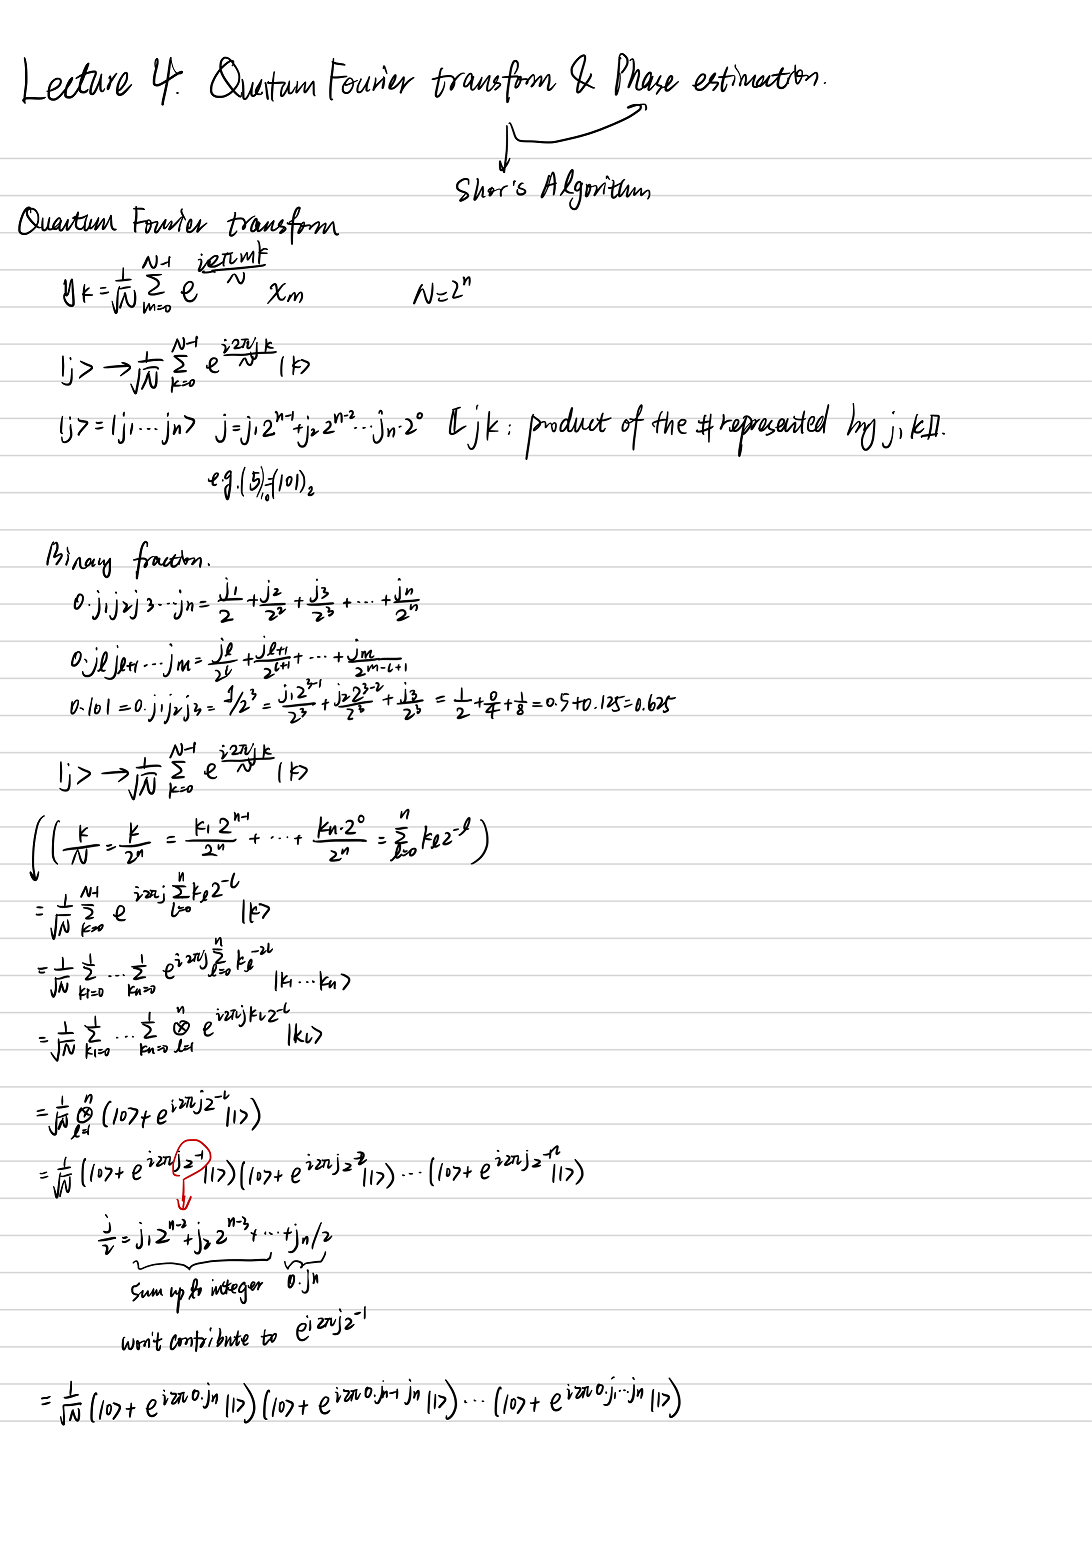 Lecture 4. Quantum Fourier transform & Phase estimation.
Shor's Algorithm
Quantum Fourier transform
y_k = 1/√N Σ_{m=0}^{N-1} e^{i2πmk/N} x_m    N=2^n
|j> → 1/√N Σ_{k=0}^{N-1} e^{i2πjk/N} |k>
|j> = |j_1 ⋯ j_n>  j = j_1 2^{n-1} + j_2 2^{n-2} ⋯ j_n·2^0  [[jk: product of the # represented by j, k]].
e.g. (5)_{10} = (101)_2
Binary fraction.
0.j_1 j_2 j_3 ⋯ j_n = j_1/2 + j_2/2^2 + j_3/2^3 + ⋯ + j_n/2^n
0.j_l j_{l+1} ⋯ j_m = j_l/2^l + j_{l+1}/2^{l+1} + ⋯ + j_m/2^{m-l+1}
0.101 = 0.j_1 j_2 j_3 = j/2^3 = j_1 2^{3-1}/2^3 + j_2 2^{3-2}/2^3 + j_3/2^3 = 1/2 + 0/4 + 1/8 = 0.5 + 0.125 = 0.625
|j> → 1/√N Σ_{k=0}^{N-1} e^{i2πjk/N} |k>
(k/N = k/2^n = k_1 2^{n-1}/2^n + ⋯ + k_n·2^0/2^n = Σ_{l=0}^{n} k_l 2^{-l})
= 1/√N Σ_{k=0}^{N-1} e^{i2πj Σ_{l=0}^{n} k_l 2^{-l}} |k>
= 1/√N Σ_{k_1=0}^{1} ⋯ Σ_{k_n=0}^{1} e^{i2πj Σ_{l=0}^{n} k_l^{-2l}} |k_1 ⋯ k_n>
= 1/√N Σ_{k_1=0}^{1} ⋯ Σ_{k_n=0}^{1} ⊗_{l=1}^{n} e^{i2πj k_l 2^{-l}} |k_l>
= 1/√N ⊗_{l=1}^{n} (|0> + e^{i2πj2^{-l}} |1>)
= 1/√N (|0> + e^{i2πj2^{-1}} |1>)(|0> + e^{i2πj2^{-2}} |1>) ⋯ (|0> + e^{i2πj2^{-n}} |1>)
j/2 = j_1 2^{n-2} + j_2 2^{n-3} + ⋯ + j_n/2
Sum up to integer  0.j_n
won't contribute to e^{i2πj2^{-1}}
= 1/√N (|0> + e^{i2π0.j_n} |1>)(|0> + e^{i2π0.j_{n-1}j_n} |1>) ⋯ (|0> + e^{i2π0.j_1⋯j_n} |1>)